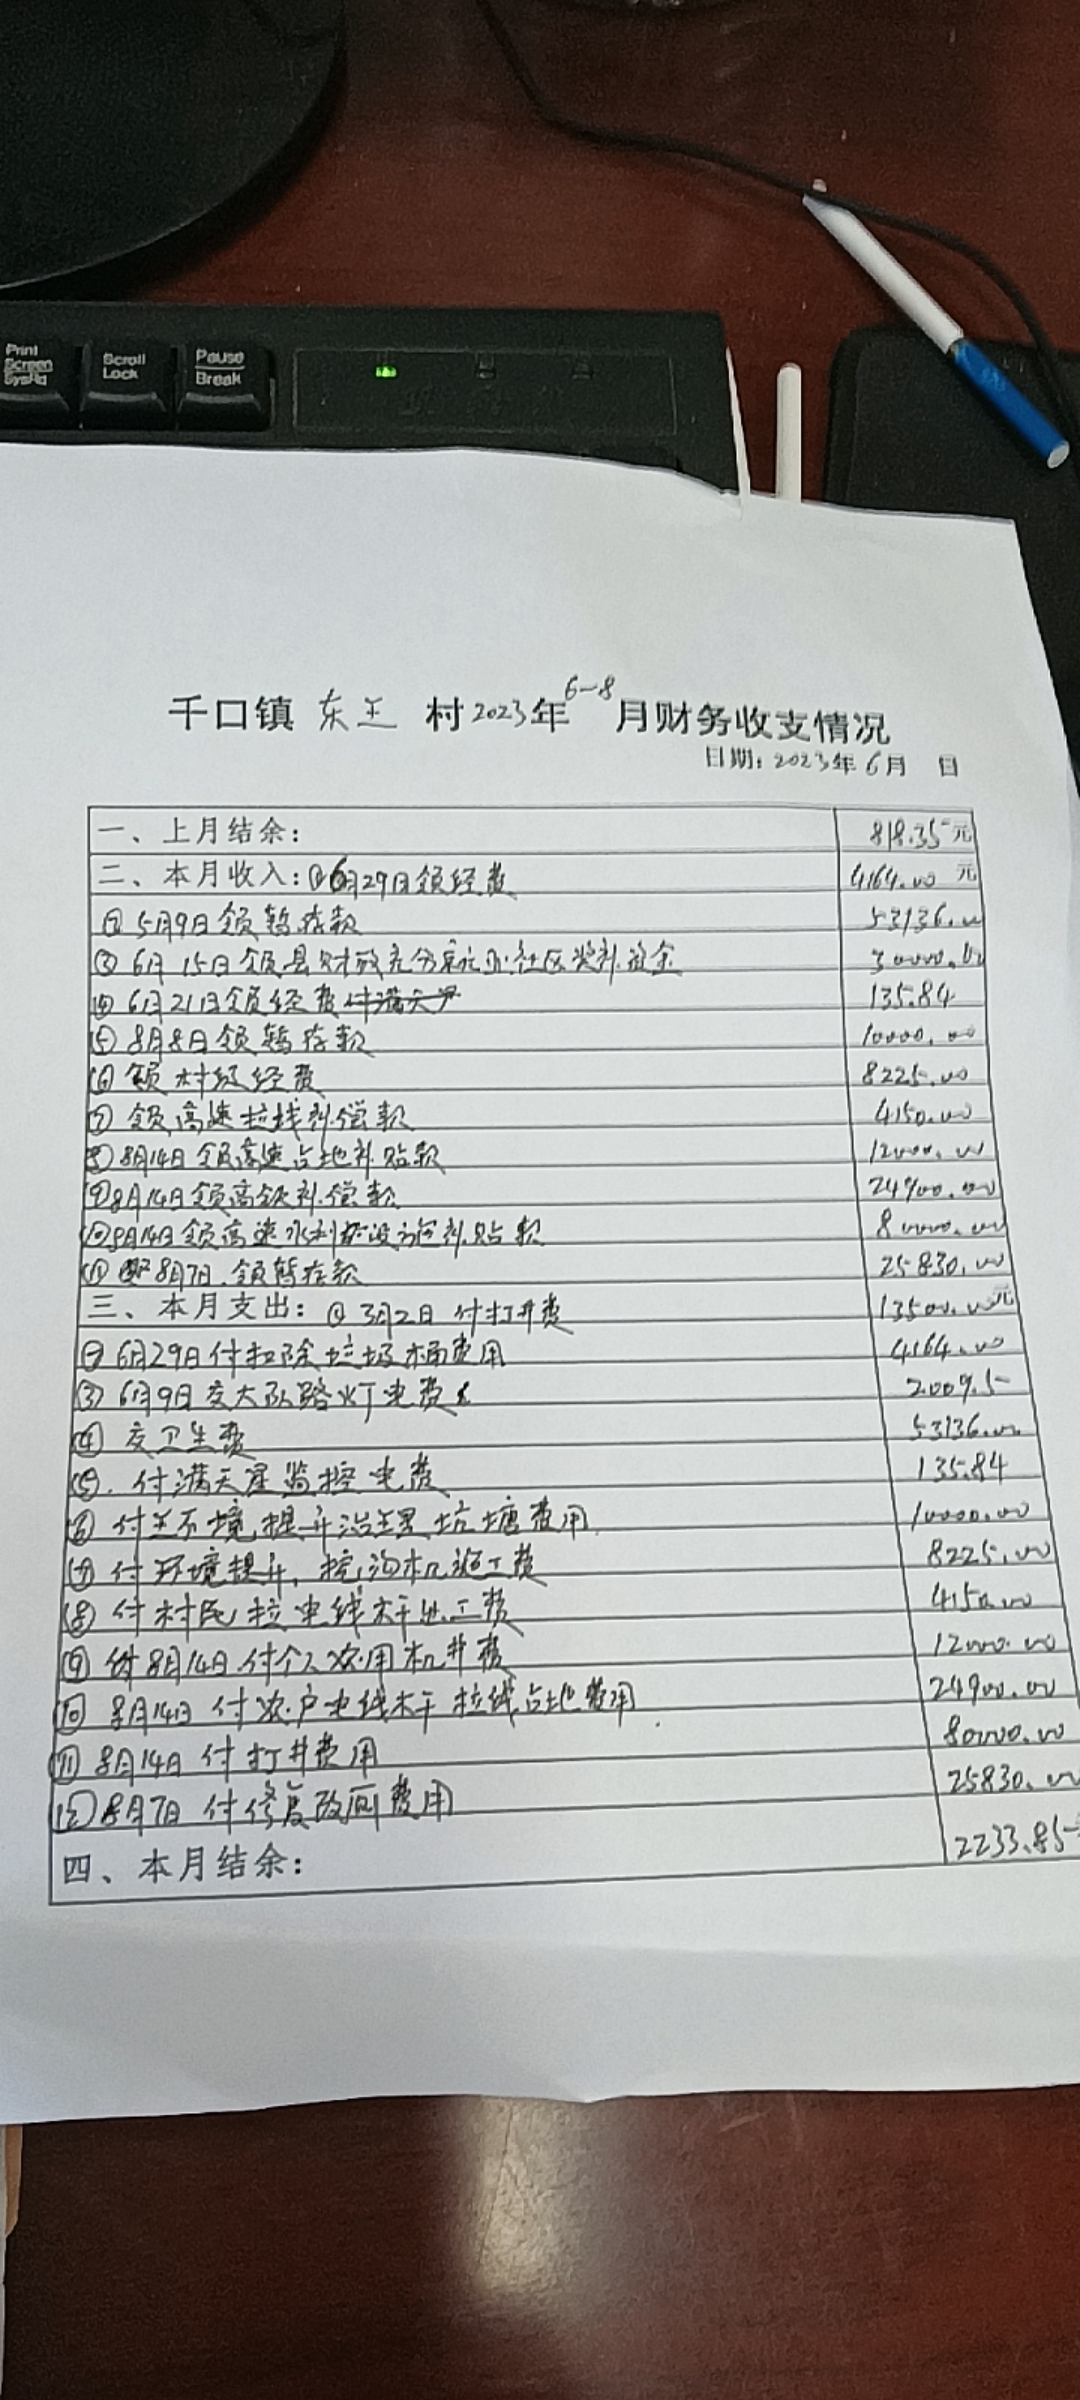 Print
Screen
SysRq
Scroll
Lock
Pause
Break
千口镇 东王 村2023年6-8月财务收支情况
日期: 2023年6月 日
一、上月结余: 818.35元
二、本月收入: ①6月29日领经费 4164.00元
②5月9日领暂存款 53136.00
③6月15日领县财政充分就业社区奖补资金 30000.00
④6月21日领经费付满天星 135.84
⑤8月8日领暂存款 10000.00
⑥领村级经费 8225.00
⑦领高速拉线补偿款 4150.00
⑧8月14日领高速占地补贴款 12000.00
⑨8月14日领高铁补偿款 24900.00
⑩8月14日领高速水利补贴款 80000.00
⑪8月7日.领暂存款 25830.00
三、本月支出: ①3月2日付打井费 13500.00元
②6月29日付扣除垃圾桶费用 4164.00
③6月9日交大队路灯电费 2009.5
④交卫生费 53136.00
⑤.付满天星监控电费 135.84
⑥付环境提升治理坑塘费用 10000.00
⑦付环境提升,挖沟机施工费 8225.00
⑧付村民拉电线杆误工费 4150.00
⑨8月14日付个人农用机井费 12000.00
⑩8月14日付农户电线杆拉线占地费用 24900.00
⑪8月14日付打井费用 80000.00
⑫8月7日付修复改厕费用 25830.00
四、本月结余: 2233.85